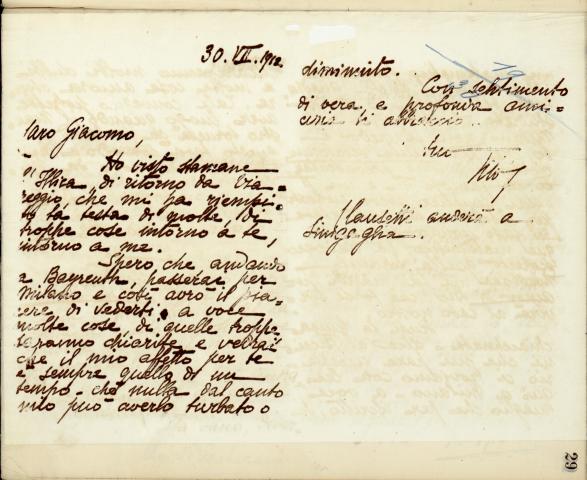 30.VII.1912
Caro Giacomo,
Ho visto stamane
"Illica" di ritorno da Via-
reggio, che mi ha riempi-
to la testa di molte, di
troppe cose intorno a te,
intorno a me.
Spero, che andando
a Bayreuth, passerai per
Milano e così avrò il pia-
cere di vederti. a voce
molte cose, di quelle troppe
saranno chiarite, e vedrai
che il mio affetto per te
è sempre quello di un
tempo - che nulla dal canto
mio può averlo turbato o
diminuito.
Con sentimento
di vera, e profonda ami-
cizia ti abbraccio.
tuo
Clausetti andrà a
Sinigaglia.
29